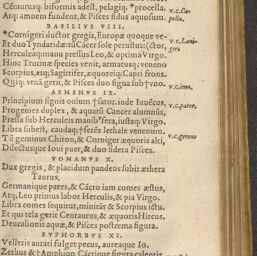 Cētaurusq; biformis adest, pelagiq; *procella.
Atq; amnem fundens, & Pisces sidus aquosum.
BASILIVS VIII.
*Cornigeri ductor gregis, Europæ quoque ve-
Et duo Tyndaridæ:
Herculeaq; manu pressus Leo, & optima Virgo.
Hinc Trutinæ species venit, armatusq; veneno
Scorpius, atq; Sagittifer, æquoreiq; Capri frons.
Quiq; vrnā gerit, & Pisces duo signa sub†vno.
ASMENVS IX.
Principium signis ouium †sator, inde Iuuēcus,
Progenies duplex, & aquarū Cancer alumnus,
Pressa sub Herculeis manib⁹fera, iustaq; Virgo.
Libra subest, caudaq;†ferēs lethale venenum.
Tū geminus Chiron, & Corniger æquoris alti,
Dilectusque Ioui puer, & duo sidera Pisces.
VOMANVS X.
Dux gregis, & placidum pandens subit æthera
Taurus,
Germanique pares, & Cācro iam comes æstus,
Atq; Leo primus labor Herculis, & pia Virgo.
Libra comes sequitur, minitās & Scorpius ictu.
Et qui tela gerit Centaurus, & æquoris Hircus.
Deucalionis aquæ, & Pisces postrema figura.
EVPHORBVS XI.
Velleris aurati fulget pecus, aureaque Io.
Zethus & †Amphion
v.c.Ca-
pella.
v.c.Lani-
geri
v.c.imo.
v.c.pater.
v.c.gerens